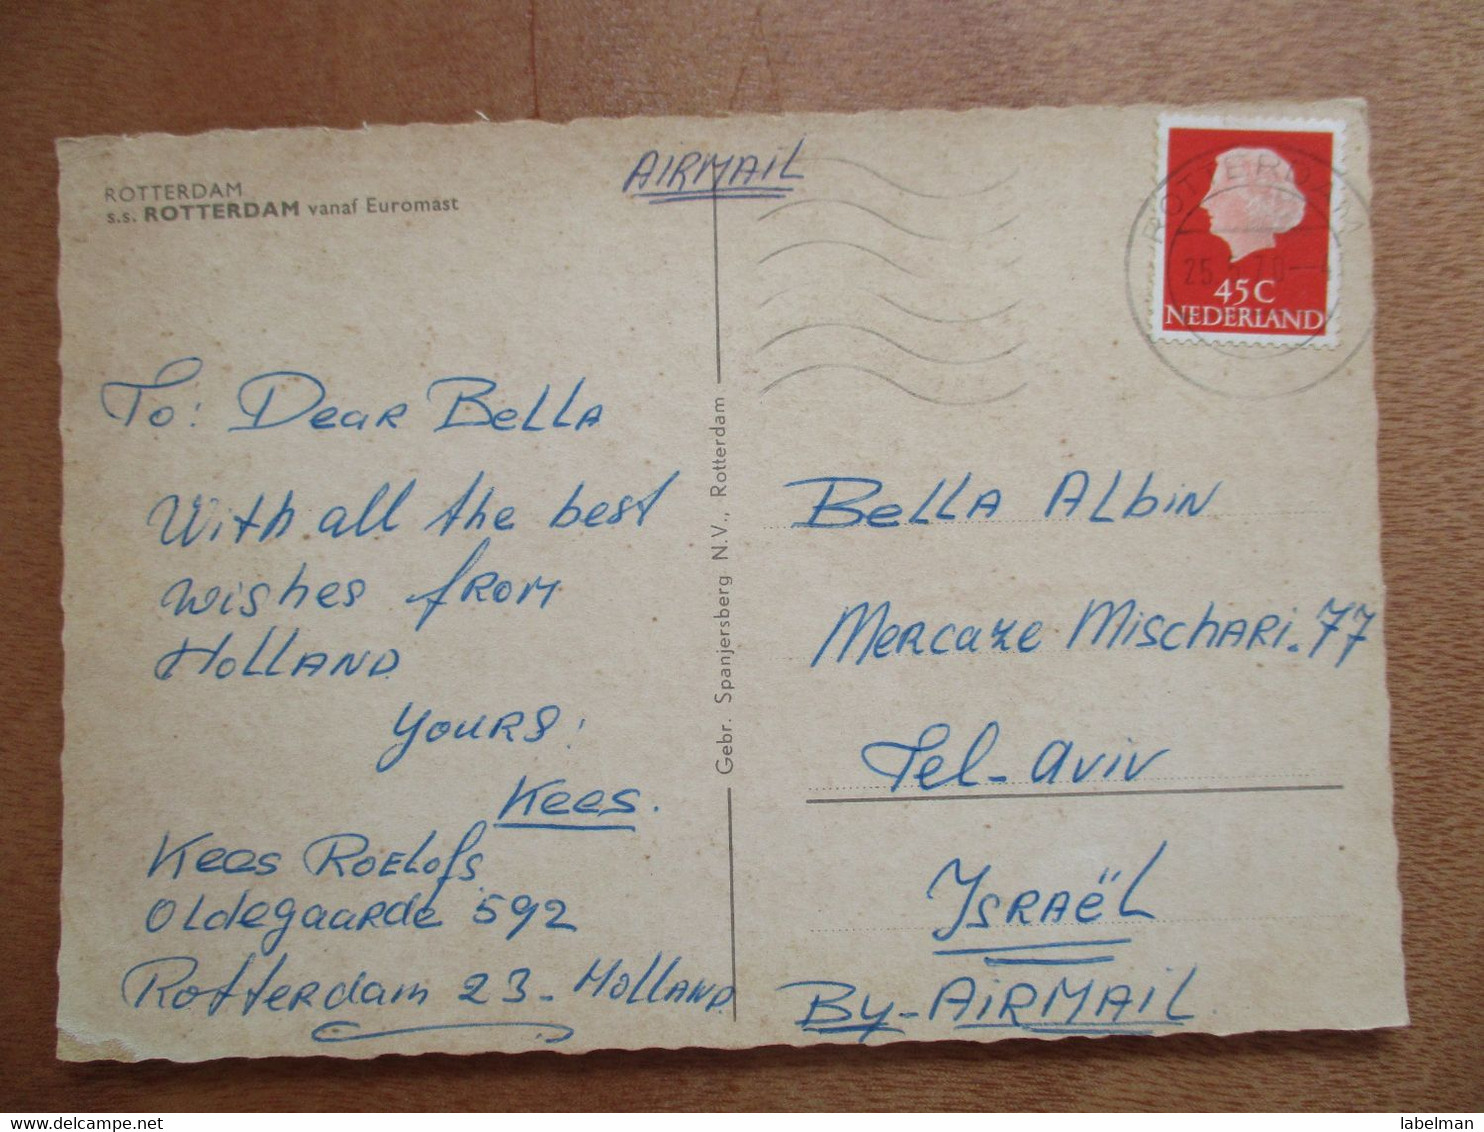 ROTTERDAM
s.s. ROTTERDAM vanaf Euromast
AIRMAIL
ROTTERDAM
45C
NEDERLAND
To: Dear Bella
With all the best
wishes from
Holland
Yours:
Kees.
Kees Roelofs.
Oldegaarde 592
Rotterdam 23 - Holland
Gebr. Spanjersberg N.V., Rotterdam
Bella Albin
Mercaze Mischari. 77
Tel-Aviv
Israël
By-AiRMAiL
labelman
delcampe.net